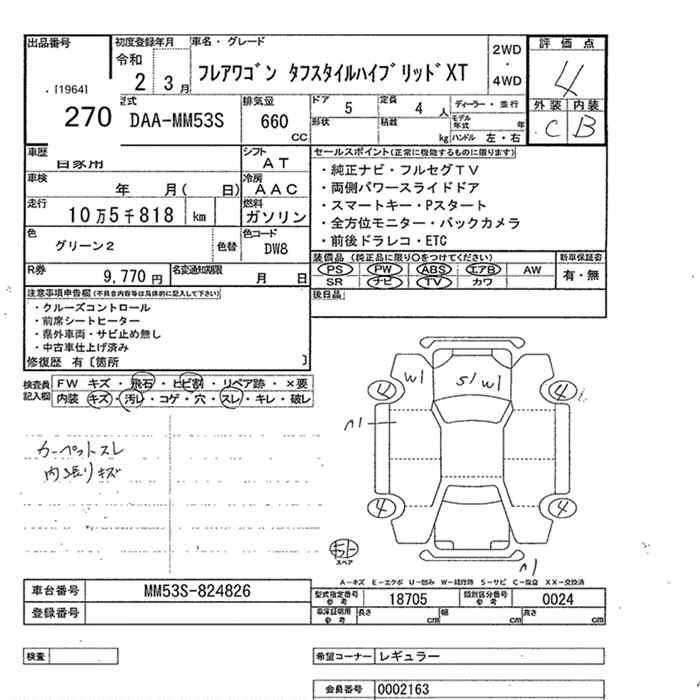 出品番号
初度登録年月
車名・グレード
2WD
・
4WD
評価点
令和
2
3月
フレアワゴン タフスタイルハイブリッドXT
4
[1964]
270
型式
DAA-MM53S
排気量
660
CC
ドア
5
定員
4
人
ディーラー・並行
形状
積載
kg
モデル
年式
年
ハンドル 左・右
外装
内装
C
B
車歴
自家用
シフト
AT
セールスポイント(正常に機能するものに限ります)
・純正ナビ・フルセグTV
・両側パワースライドドア
・スマートキー・Pスタート
・全方位モニター・バックカメラ
・前後ドラレコ・ETC
車検
年 月( 日)
冷房
AAC
走行
10万5千818
km
燃料
ガソリン
色
グリーン2
色替
色コード
DW8
装備品 (純正品に限り○をつけてください)
新車保証書
PS PW ABS エアB AW
SR ナビ TV カワ
有・無
R券
9,770円
名変通知期限
月 日
後日品
注意事項申告欄(不具合内容等は具体的に記入して下さい)
・クルーズコントロール
・前席シートヒーター
・県外車両・サビ止め無し
・中古車仕上げ済み
修復歴 有[箇所 ]
検査員
記入欄
FW キズ・飛石・ヒビ割・リペア跡・×要
内装・キズ・汚レ・コゲ・穴・スレ・キレ・破レ
カーペットスレ
内張りキズ
W1
S1 W1
4
4
A1
4
4
スペア
A1
A-キズ E-エクボ U-凹み W-補修跡 S-サビ C-腐食 XX-交換済
車台番号
MM53S-824826
型式指定番号
参考
18705
類別区分番号
参考
0024
登録番号
車庫証明用
参考
長さ
cm
幅
cm
高さ
cm
検査
希望コーナー
レギュラー
会員番号
0002163